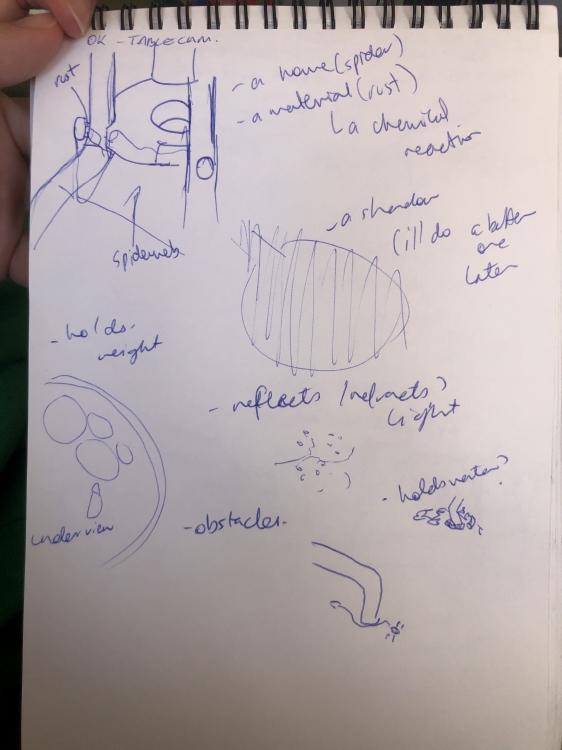 OK - TABLE CAM.
rust
- a home (spider)
- a material (rust)
a chemical
reaction
spiderweb
- a shadow
(ill do a better
one
later
- holds
weight
- reflects / refracts?
light
- holds water?
underview
- obstacles.